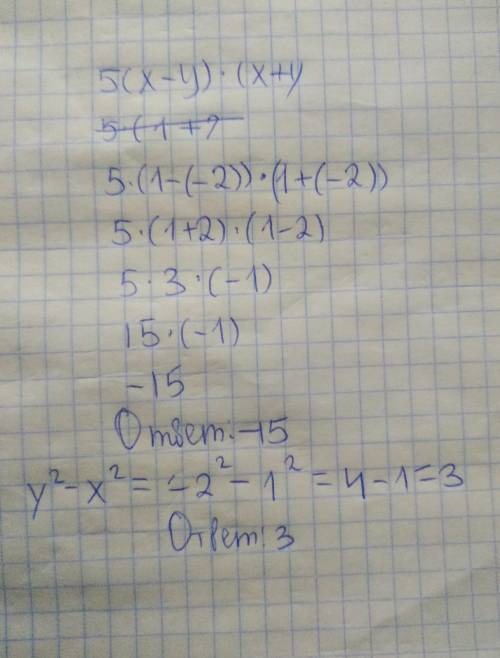 5(x-y)·(x+y
5·(1+2
5·(1-(-2))·(1+(-2))
5·(1+2)·(1-2)
5·3·(-1)
15·(-1)
-15
Ответ:-15
y²-x²= -2²-1²=4-1=3
Ответ:3